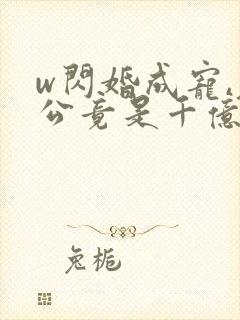 w閃婚成寵,
公竟是千億
兔梔